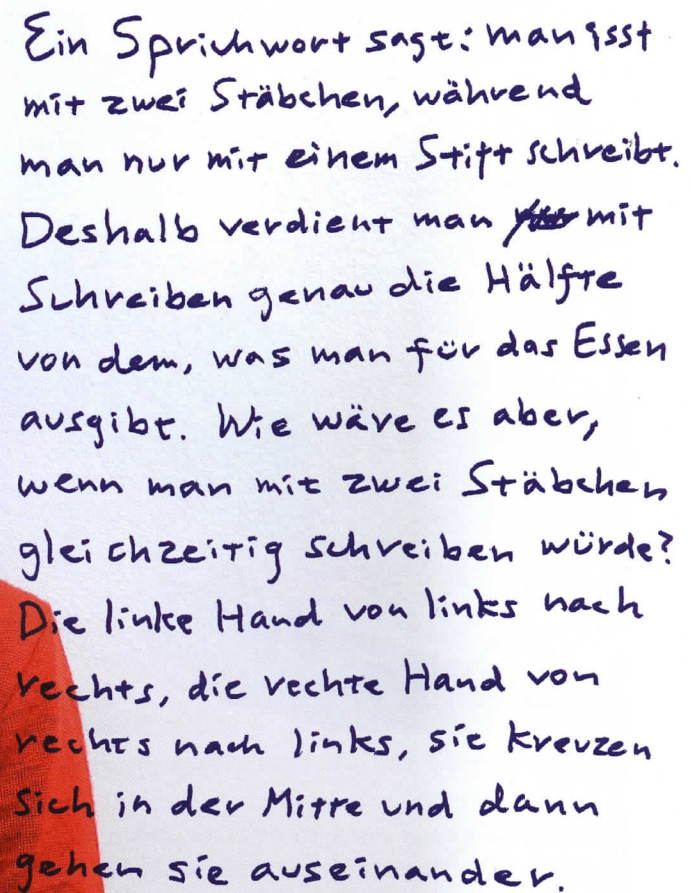 Ein Sprichwort sagt: man isst
mit zwei Stäbchen, während
man nur mit einem Stift schreibt.
Deshalb verdient man mit
Schreiben genau die Hälfte
von dem, was man für das Essen
ausgibt. Wie wäre es aber,
wenn man mit zwei Stäbchen
gleichzeitig schreiben würde?
Die linke Hand von links nach
rechts, die rechte Hand von
rechts nach links, sie kreuzen
sich in der Mitte und dann
gehen sie auseinander.